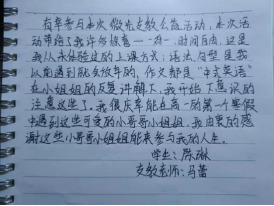 有幸参与本次微光支教公益活动,本次活
动带给了我许多惊喜——一对一,时间自由,这是
我从未体验过的上课方式;语法、句型是我
以前遇到就会放弃的,作文都是“中式英语”
在小姐姐的反复讲解下,我开始下意识的
注意这些了。我很庆幸能在高一的第一个寒假
中遇到这些可爱的小哥哥小姐姐,我由衷的感
谢这些小哥哥小姐姐能来参与我的人生。
学生:陈琳
支教老师:马蕾